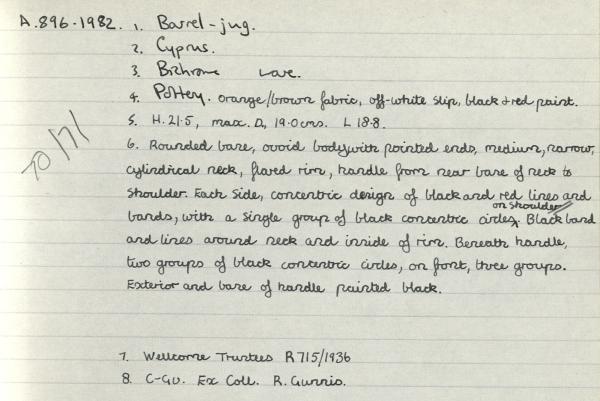 A.896-1982. 1. Barrel-jug.
2. Cyprus.
3. Bichrome ware.
4. Pottery. orange/brown fabric, off-white slip, black & red paint.
5. H. 21.5, max. D, 19.0 cms. L 18.8.
6. Rounded base, ovoid body with pointed ends, medium, narrow,
cylindrical neck, flared rim, handle from near base of neck to
shoulder. Each side, concentric design of black and red lines and
bands, with a single group of black concentric circles on shoulder. Black band
and lines around neck and inside of rim. Beneath handle,
two groups of black concentric circles, on front, three groups.
Exterior and base of handle painted black.
7. Wellcome Trustees R715/1936
8. C-GU. Ex Coll. R. Gunnis.